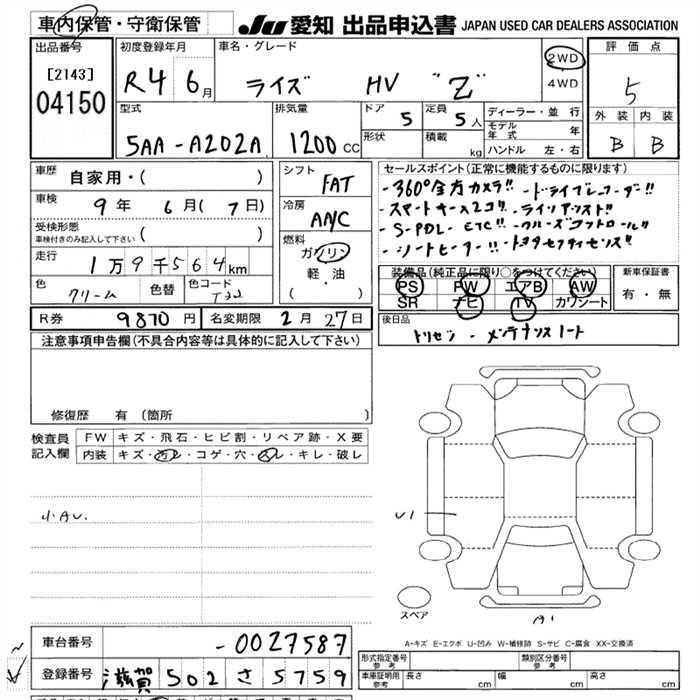 車内保管・守衛保管 JU 愛知 出品申込書 JAPAN USED CAR DEALERS ASSOCIATION
出品番号 [2143] 04150
初度登録年月 R4 6月
車名・グレード ライズ HV "Z"
2WD
4WD
評価点 5
外装 B 内装 B
型式 5AA-A202A
排気量 1200CC
ドア 5
形状
定員 5人
積載 kg
ディーラー・並行
モデル年式 年
ハンドル 左・右
車歴 自家用・( )
車検 9年 6月(7日)
受検形態
車検付きのみ記入して下さい ( )
走行 1万9千564km
色 クリーム 色替 色コード T32
シフト FAT
冷房 A/C
燃料 ガソリン
軽・油
( ・ )
セールスポイント(正常に機能するものに限ります)
・360°全方カメラ!! ・ドライブレコーダー!!
・スマートキー2コ!!
・S-PDL・ETC!! ・クルーズコントロール!!
・シートヒーター!!
装備品(純正品に限り○をつけてください)
PS PW エアB AW
SR ナビ TV カワシート
新車保証書
有・無
後日品 トリセツ・メンテナンスノート
R券 9870円 名変期限 2月27日
注意事項申告欄(不具合内容等は具体的に記入して下さい)
修復歴 有(箇所 )
検査員記入欄
FW キズ・飛石・ヒビ割・リペア跡・X要
内装 キズ・汚レ・コゲ・穴・スレ・キレ・破レ
U1
スペア
A1
A-キズ E-エクボ U-凹み W-補修跡 S-サビ C-腐食 XX-交換済
車台番号 -0027587
登録番号 滋賀 502 さ 5759
形式指定番号 参考
類別区分番号 参考
車庫証明用 参考 長さ cm 幅 cm 高さ cm